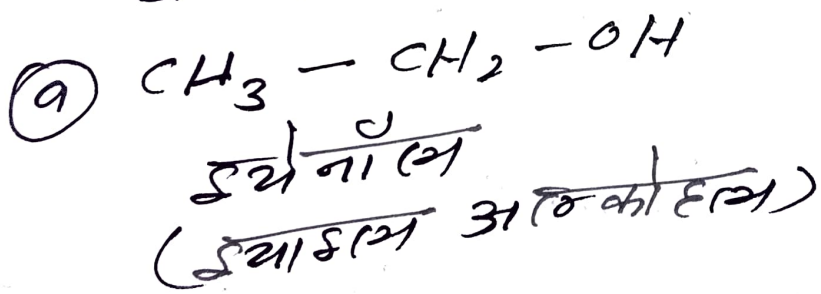 (a) CH₃ – CH₂ – OH
इथेनॉल
(इथाइल अल्कोहल)